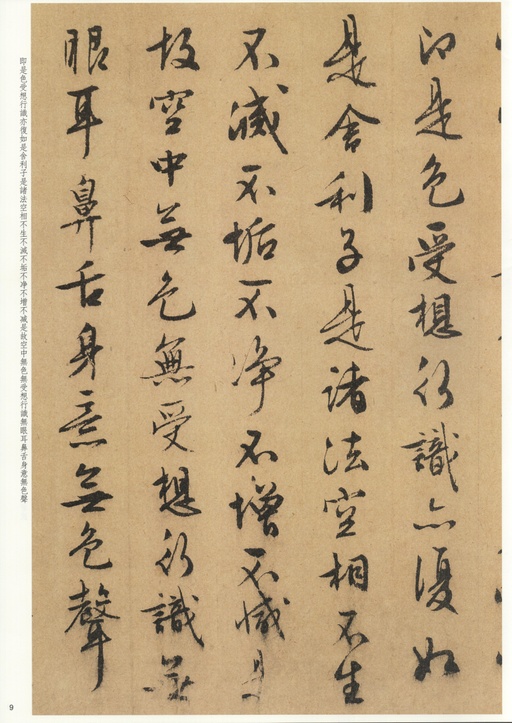 即是色受想行識亦復如
是舍利子是諸法空相不生
不滅不垢不淨不增不減是
故空中無色無受想行識無
眼耳鼻舌身意無色聲
即是色受想行識亦復如是舍利子是諸法空相不生不滅不垢不净不增不减是故空中無色無受想行識無眼耳鼻舌身意無色聲
9